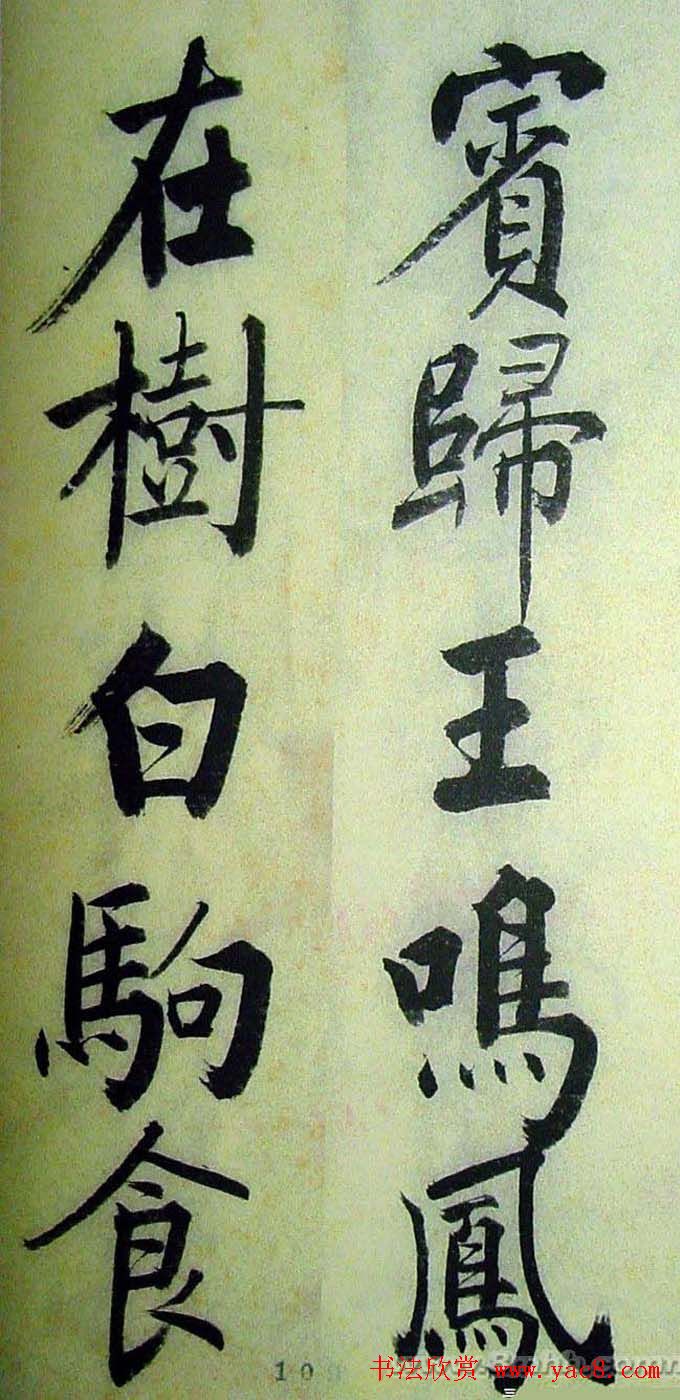 賓歸王鳴鳳
在樹白駒食
10
书法欣赏 www.yac8.com